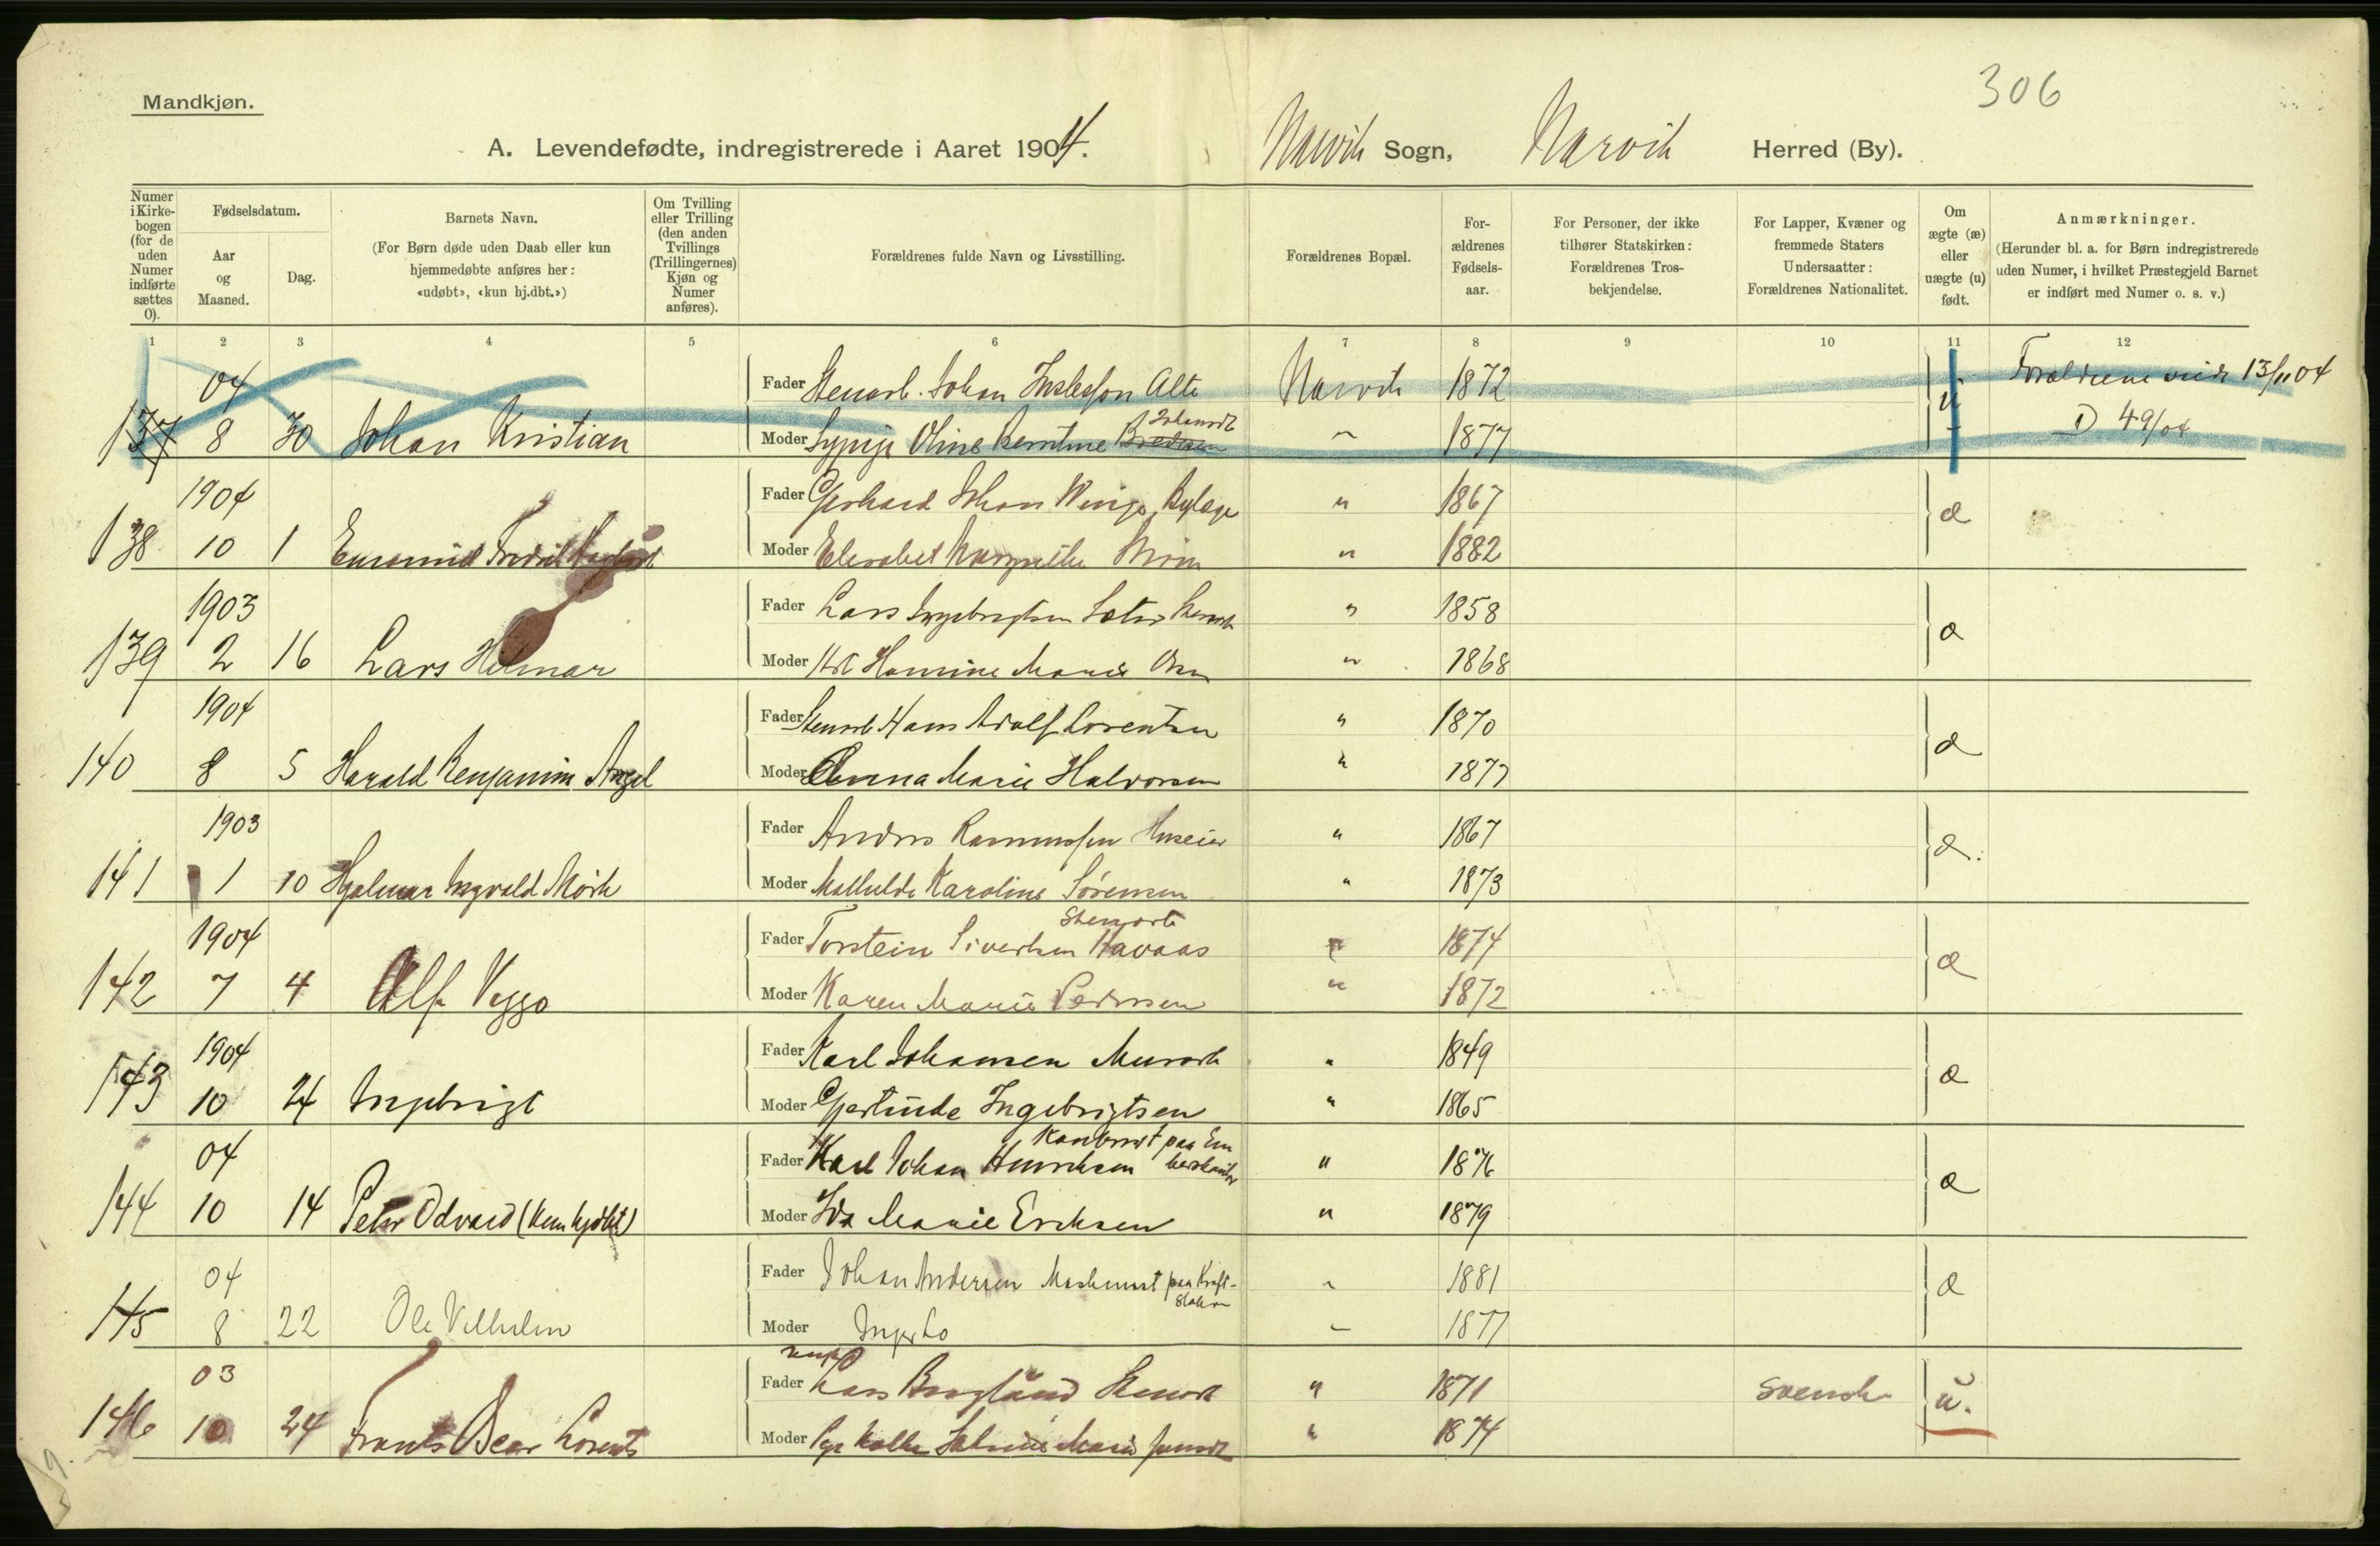 306
Mandkjøn.
A. Levendefødte, indregistrerede i Aaret 1904. Narvik Sogn, Narvik Herred (By).
Numer i Kirkebogen (for de uden Numer indførte sættes 0).
Fødselsdatum.
Aar og Maaned.
Dag.
Barnets Navn.
(For Børn døde uden Daab eller kun hjemmedøbte anføres her: «udøbt», «kun hj.dbt.»)
Om Tvilling eller Trilling (den anden Tvillings (Trillingernes) Kjøn og Numer anføres).
Forældrenes fulde Navn og Livsstilling.
Forældrenes Bopæl.
Forældrenes Fødselsaar.
For Personer, der ikke tilhører Statskirken: Forældrenes Trosbekjendelse.
For Lapper, Kvæner og fremmede Staters Undersaatter: Forældrenes Nationalitet.
Om ægte (æ) eller uægte (u) født.
Anmærkninger.
(Herunder bl. a. for Børn indregistrerede uden Numer, i hvilket Præstegjeld Barnet er indført med Numer o. s. v.)
1 2 3 4 5 6 7 8 9 10 11 12
04 Fader Stenarb. Johan Alte Narvik 1872 u Forældrene viede 13/11 04
137 8 30 Johan Kristian Moder Oline 1877 D 49/04
1904 Fader Gerhard Johan " 1867 æ
138 10 1 Fredrik Moder Elisabet " 1882
1903 Fader Lars Ingebrigtsen " 1858 æ
139 2 16 Lars Hilmar Moder Marie " 1868
1904 Fader Stenarb Hans Adolf Lorentsen " 1870 æ
140 8 5 Harald Benjamin Angel Moder Anna Marie Halvorsen " 1877
1903 Fader Andres Rasmussen Huseier " 1867 æ.
141 1 10 Hjalmar Ingvald Mørk Moder Mathilde Karoline Sørensen " 1873
Stenarb
1904 Fader Torstein Sivertsen Havaas " 1874 æ
142 7 4 Alf Viggo Moder Karen Marie Pedersen " 1872
1904 Fader Karl Johansen Murarb " 1849 æ
143 10 24 Ingebrigt Moder Gjertrude Ingebrigtsen " 1865
04 Fader Karl Johan Henriksen paa " 1876 æ
144 10 14 Peter Odvard (kun hjdbt) Moder Ida Marie Eriksen " 1879
04 Fader Johan Andersen Maskinist paa Kraftstation " 1881 æ
145 8 22 Ole Vilhelm Moder Inger Lo " 1877
03 Fader Lars Berglund Stenarb " 1871 svensk u.
146 10 24 Frants Oscar Lorents Moder Marie " 1874